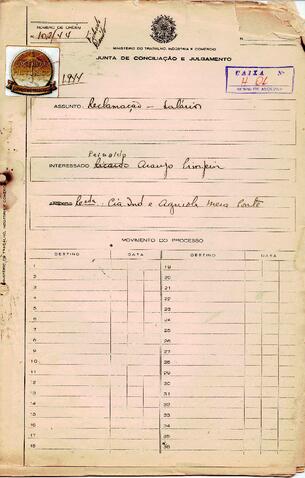 NUMERO DE ORDEM
N. 102/44
MINISTERIO DO TRABALHO, INDUSTRIA E COMERCIO
JUNTA DE CONCILIAÇÃO E JULGAMENTO
CAIXA
Nº 401
1944
ASSUNTO: Reclamação – Salários
Reinaldo
INTERESSADO Ricardo Araujo
Recda. Cia Ind e Agricola
MOVIMENTO DO PROCESSO
DESTINO DATA DESTINO DATA
1 19
2 20
3 21
4 22
5 23
6 24
7 25
8 26
9 27
10 28
11 29
12 30
13 31
14 32
15 33
16 34
17 35
18 36
MINISTERIO DO TRABALHO, INDUSTRIA E COMERCIO